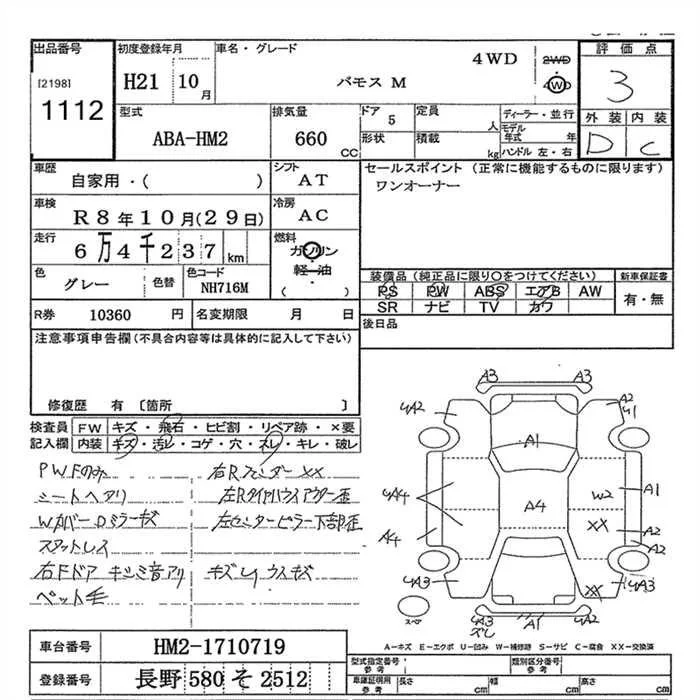 出品番号
[2198]
1112
初度登録年月
H21 10月
車名・グレード
バモス M
4WD
2WD
4WD
評価点
3
外装 内装
D C
型式
ABA-HM2
排気量
660 CC
ドア 5
形状
定員 人
積載 kg
ディーラー・並行
モデル年式 年
ハンドル 左・右
車歴
自家用・( )
シフト
AT
車検
R8年10月(29日)
冷房
AC
走行
6万4千237km
燃料
ガソリン
軽油
( )
色
グレー
色替
色コード
NH716M
セールスポイント (正常に機能するものに限ります)
ワンオーナー
装備品 (純正品に限り○をつけてください)
PS PW ABS エアB AW
SR ナビ TV カワ
新車保証書
有・無
R券 10360 円
名変期限 月 日
後日品
注意事項申告欄 (不具合内容等は具体的に記入して下さい)
修復歴 有 [箇所 ]
検査員記入欄
FW キズ・飛石・ヒビ割・リペア跡・×要
内装 キズ・汚レ・コゲ・穴・スレ・キレ・破レ
PWFのみ
シートヘアリ
Wカバー Dミラーキズ
スタットレス
右Fドア キシミ音アリ
ペット毛
右Rフェンダー XX
左Rタイヤハウスアウター歪
左センターピラー下部歪
キズU ウスキズ
A3 A3
UA2 A2
U1
A1
UA4
A4
A4
W2
A1
XX
A2
A2
UA3
XX
UA3
スペア
UA3
ズレ
A1
UA2
A-キズ E-エクボ U-凹み W-補修跡 S-サビ C-腐食 XX-交換済
車台番号
HM2-1710719
登録番号
長野 580 そ 2512
型式指定番号
参考
類別区分番号
参考
車庫証明用
参考
長さ cm
幅 cm
高さ cm